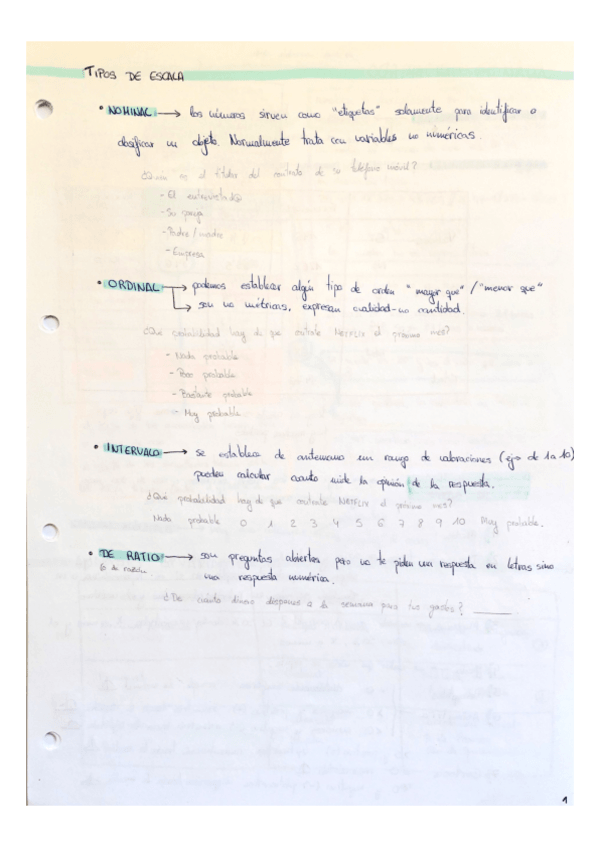 TIPOS DE ESCALA
• NOMINAL → los números sirven como "etiquetas" solamente para identificar o
clasificar un objeto. Normalmente trata con variables no numéricas.
¿Quién es el titular del contrato de su teléfono móvil?
- El entrevistad@
- Su pareja
- Padre / madre
- Empresa
• ORDINAL → podemos establecer algún tipo de orden "mayor que" / "menor que"
↳ son no métricas, expresan cualidad-no cantidad.
¿Que probabilidad hay de que contrate NETFLIX el próximo mes?
- Nada probable
- Poco probable
- Bastante probable
- Muy probable
• INTERVALO → se establece de antemano un rango de valoraciones (ejm de 1 a 10)
puedes calcular cuanto mide la opinión de la respuesta.
¿Que probabilidad hay de que contrate NETFLIX el próximo mes?
Nada probable 0 1 2 3 4 5 6 7 8 9 10 Muy probable.
• DE RATIO → son preguntas abiertas pero no te piden una respuesta en letras sino
o de razón
una respuesta numérica.
¿De cuánto dinero dispones a la semana para tus gastos? ______
1